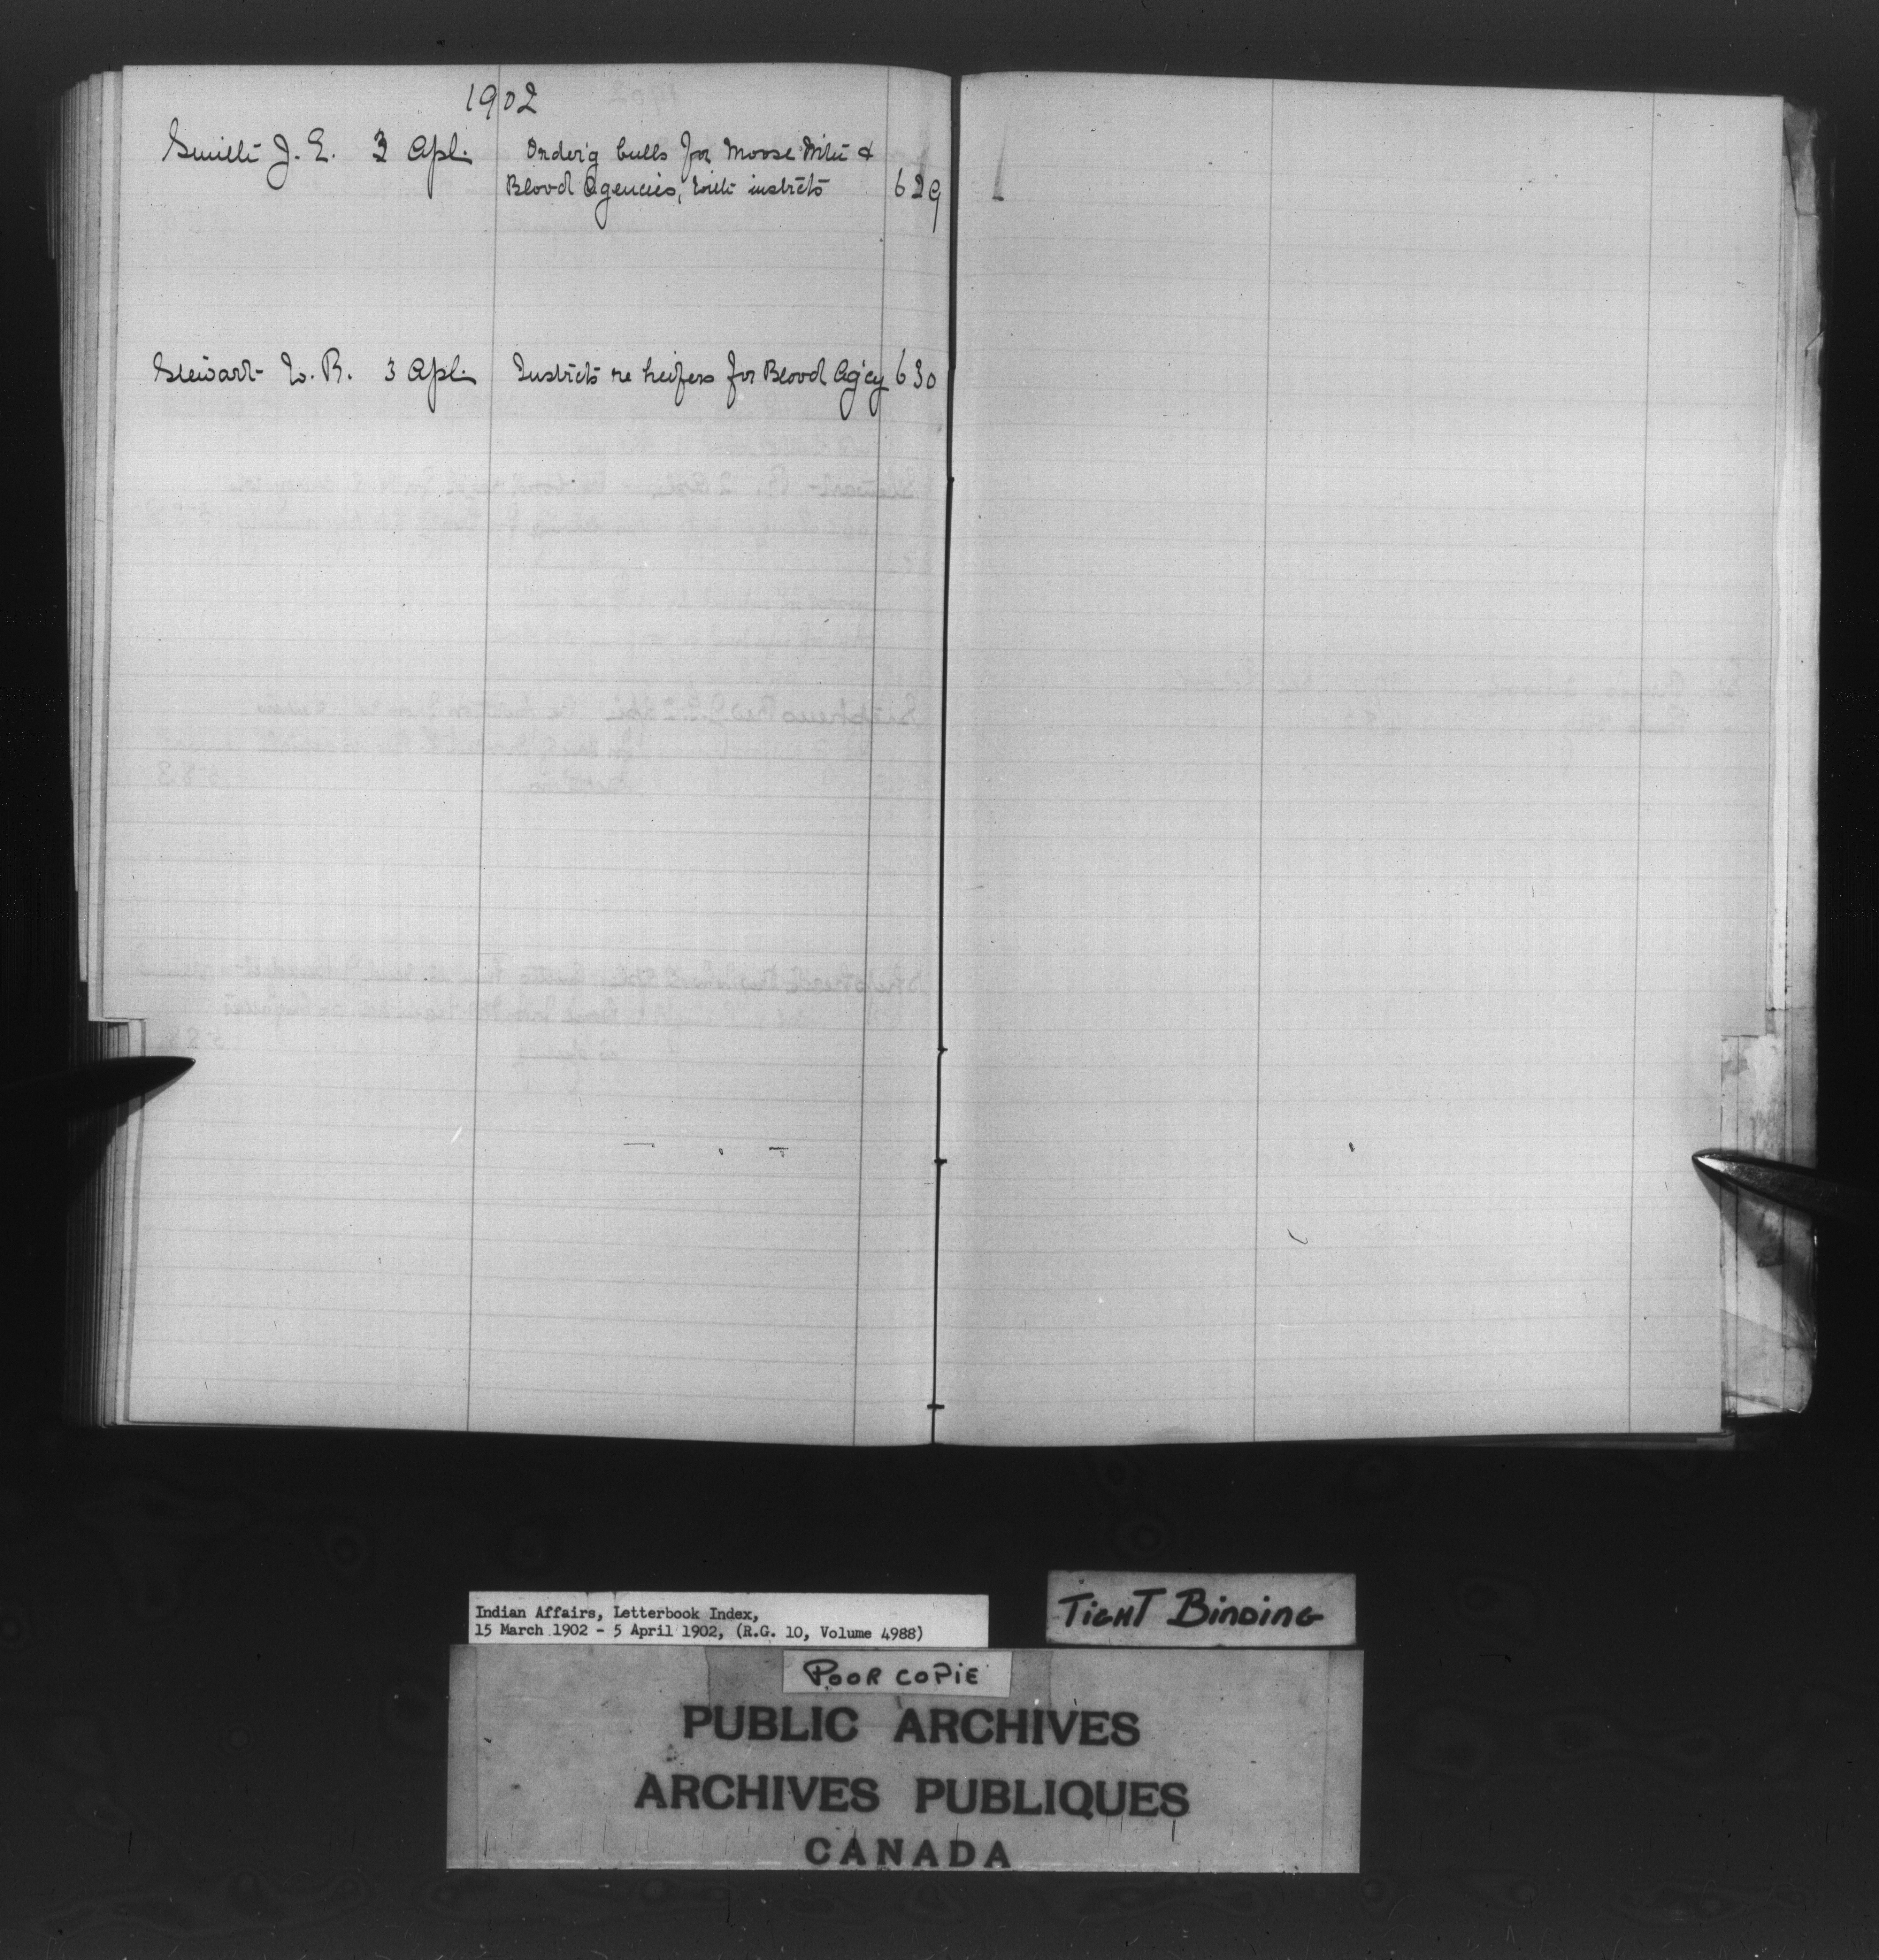 1902
Smith J. E. 3 Apl. Order'g bulls for Moose Mtn &
Blood Agencies, with instrcts 629
Stewart W. R. 3 Apl. Instrcts re heifers for Blood Ag'cy 630
Indian Affairs, Letterbook Index,
15 March 1902 - 5 April 1902, (R.G. 10, Volume 4988)
TIGHT BINDING
POOR COPIE
PUBLIC ARCHIVES
ARCHIVES PUBLIQUES
CANADA